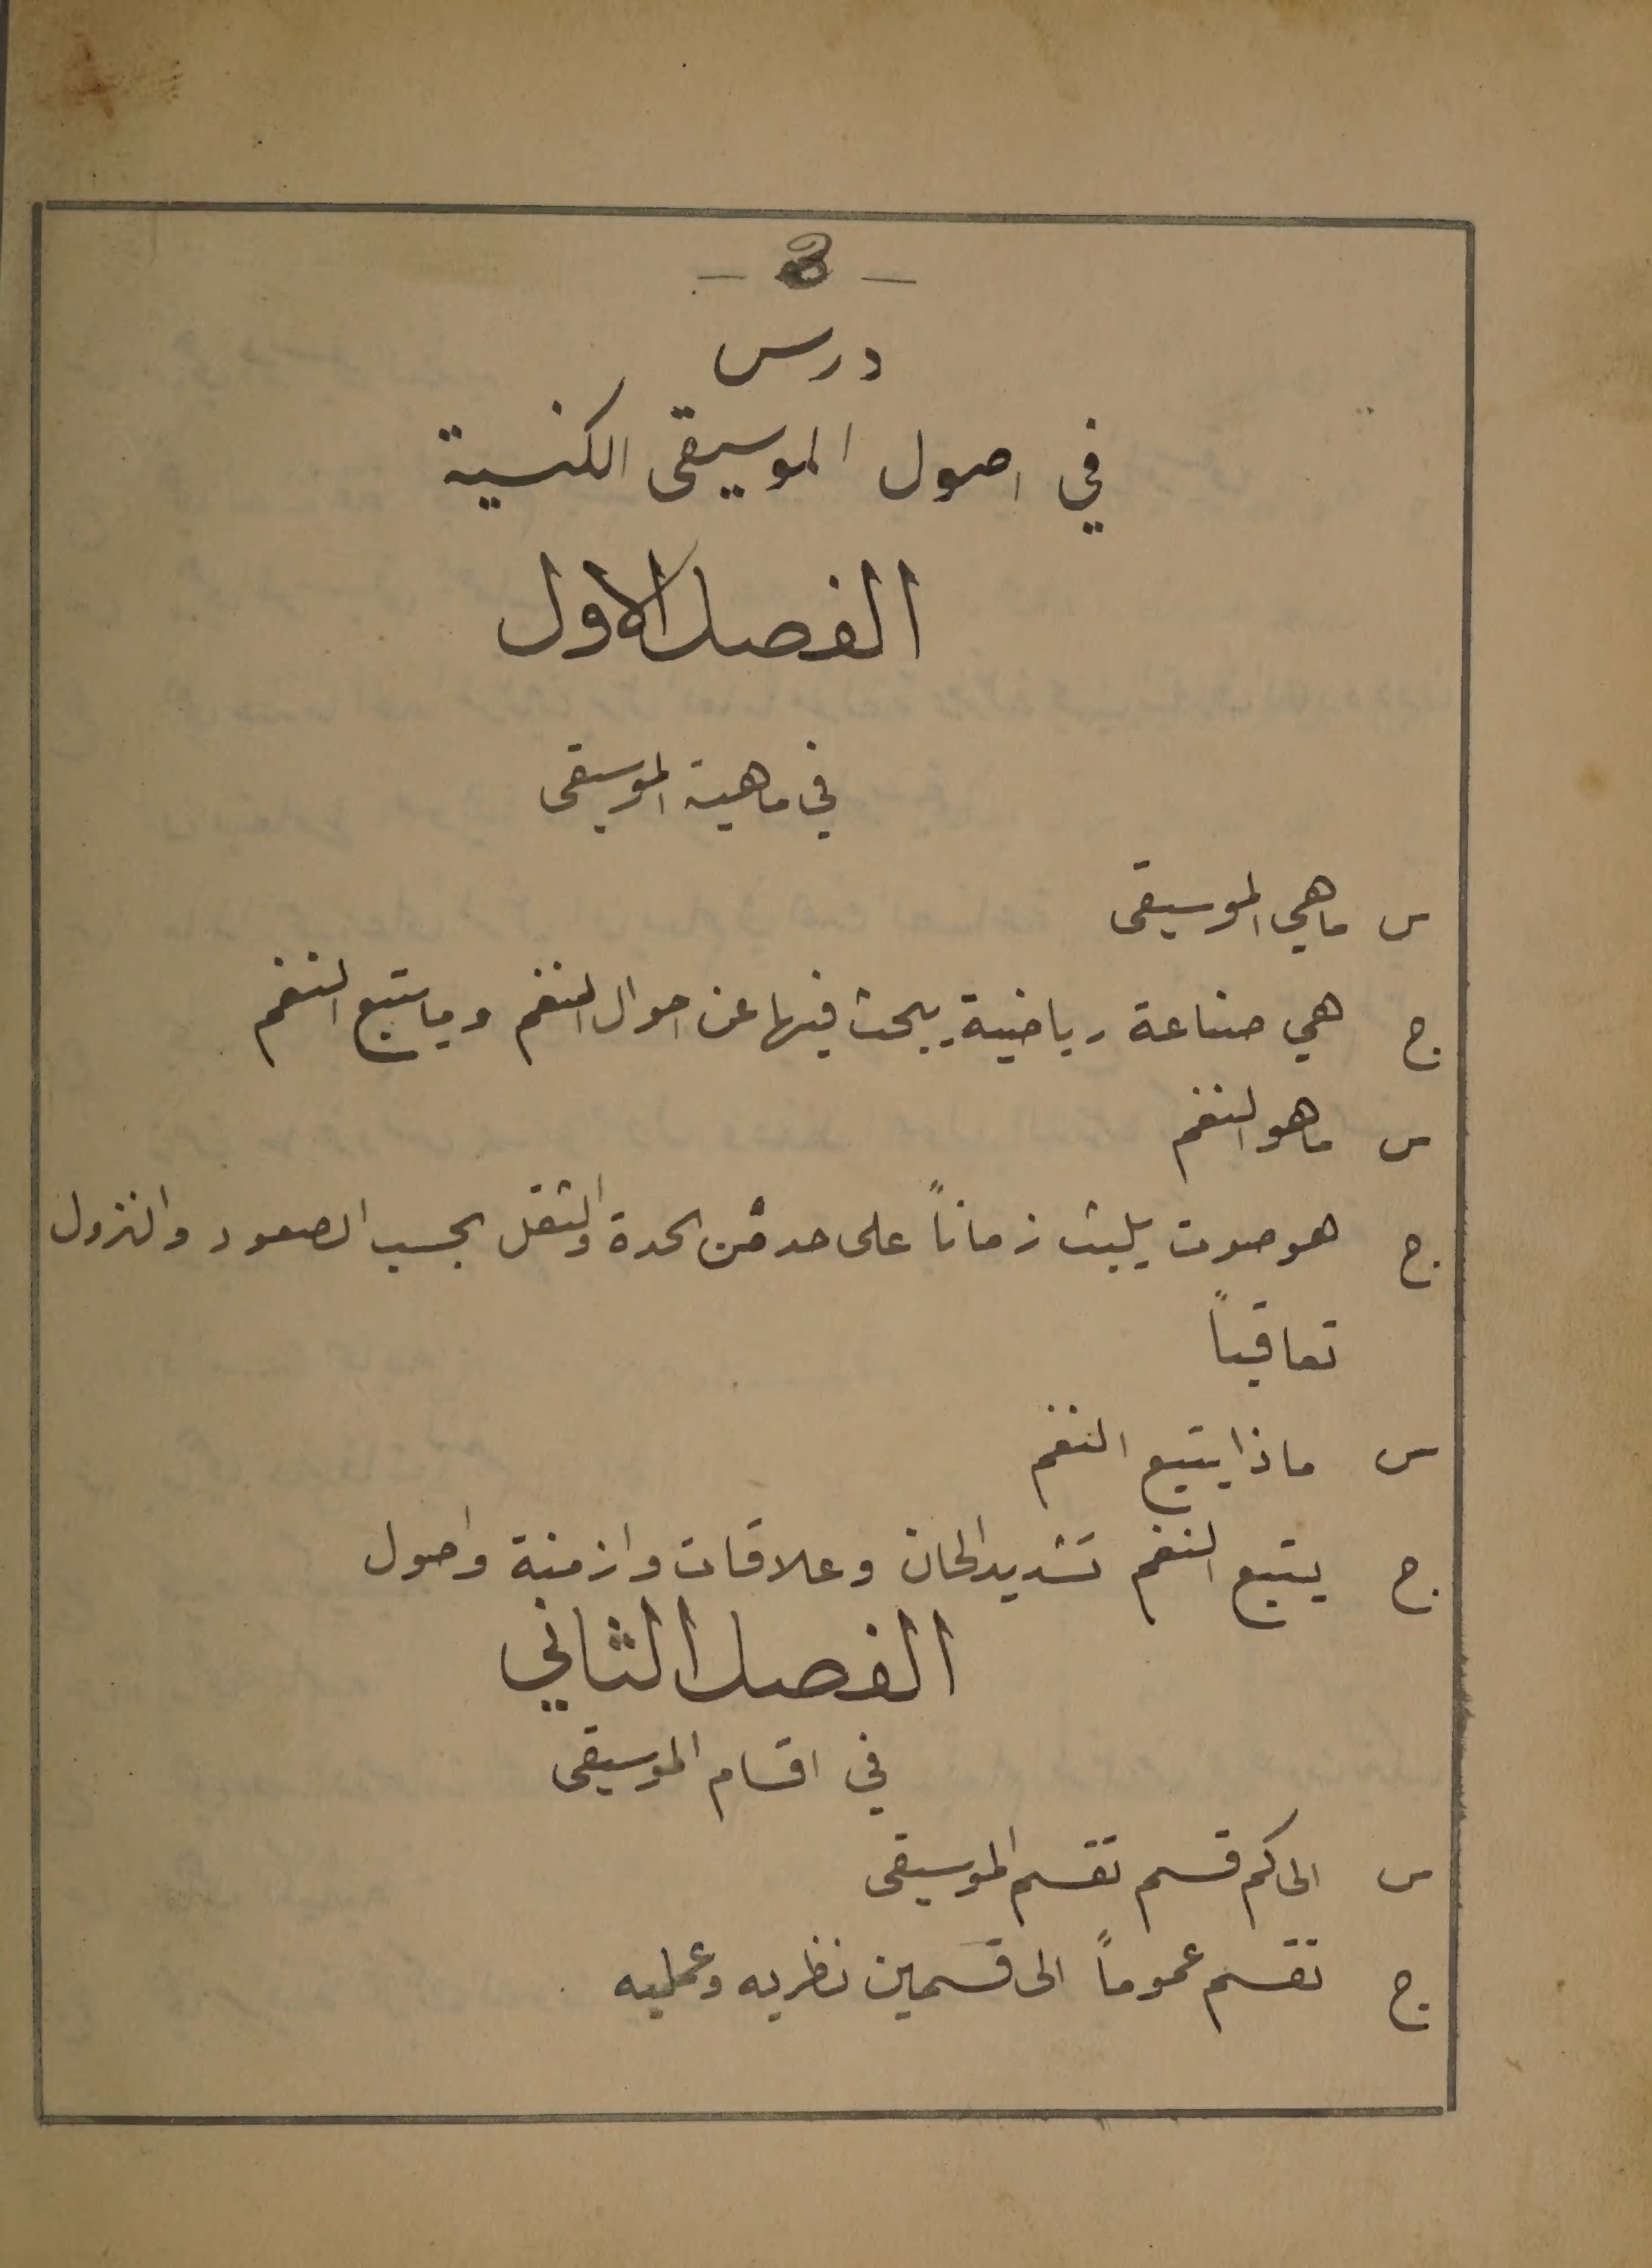 درس
في اصول الموسيقى الكنسية
الفصل الاول
في ماهية الموسيقى
س ماهي الموسيقى
ج هي صناعة رياضية يبحث فيها عن احوال النغم وما يتبع النغم
س ماهو النغم
ج هو صوت يلبث زماناً على حد من الحدة والثقل بحسب الصعود والنزول
تعاقباً
س ماذا يتبع النغم
ج يتبع النغم تشديد الحان وعلاقات وازمنة واصول
الفصل الثاني
في اقسام الموسيقى
س الى كم قسم تقسم الموسيقى
ج تقسم عموماً الى قسمين نظريه وعمليه